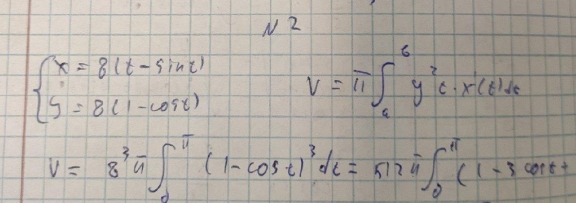 N 2
{ x = 8(t - sint)
y = 8(1 - cost)
V = π∫ₐᵇ y²t · x(t)dt
V = 8³π∫₀^π (1 - cost)³dt = 512π∫₀^π (1 - 3cost +